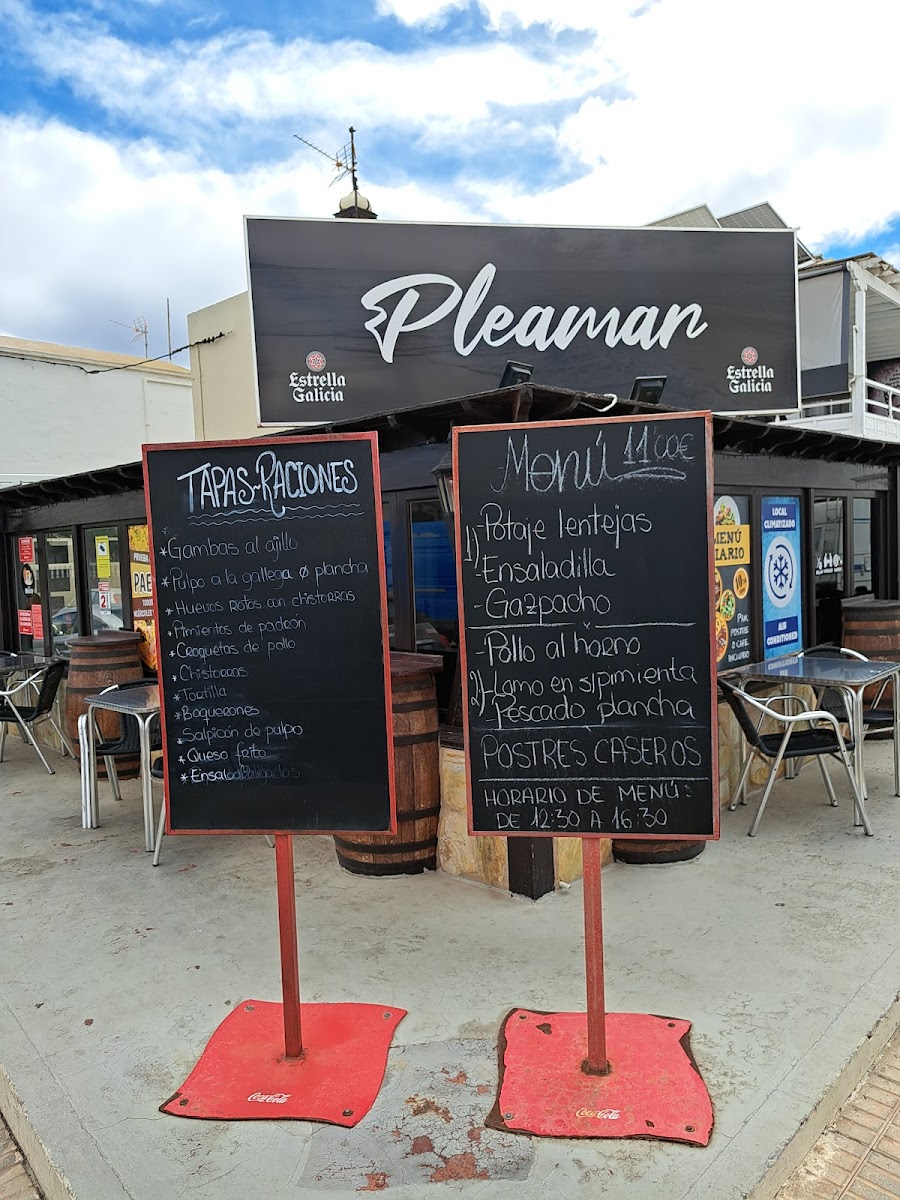 Pleamar
Estrella
Galicia
Estrella
Galicia
TAPAS-RACIONES
*Gambas al ajillo
*Pulpo a la gallega o plancha
*Huevos Rotos con chistorras
*Pimientos de padron
*Croquetas de pollo
*Chistorras
*Tortilla
*Boquerones
*Salpicón de pulpo
*Queso frito
*Ensaladas
Menú 11'00€
1) -Potaje lentejas
-Ensaladilla
-Gazpacho
-Pollo al horno
2) -Lomo en s/pimienta
-Pescado plancha
POSTRES CASEROS
HORARIO DE MENÚ:
DE 12:30 A 16:30
MENÚ
DIARIO
PAN,
POSTRE
O CAFÉ
INCLUIDO
LOCAL
CLIMATIZADO
AIR
CONDITIONED
PAE
2
Coca-Cola
Coca-Cola